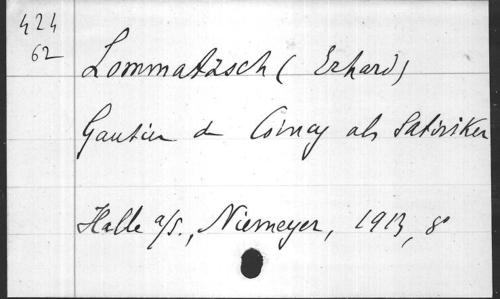 424
62
Lommatzsch (Erhard)
Gautier de Coincy als Satiriker
Halle a/S., Niemeyer, 1913, 8°